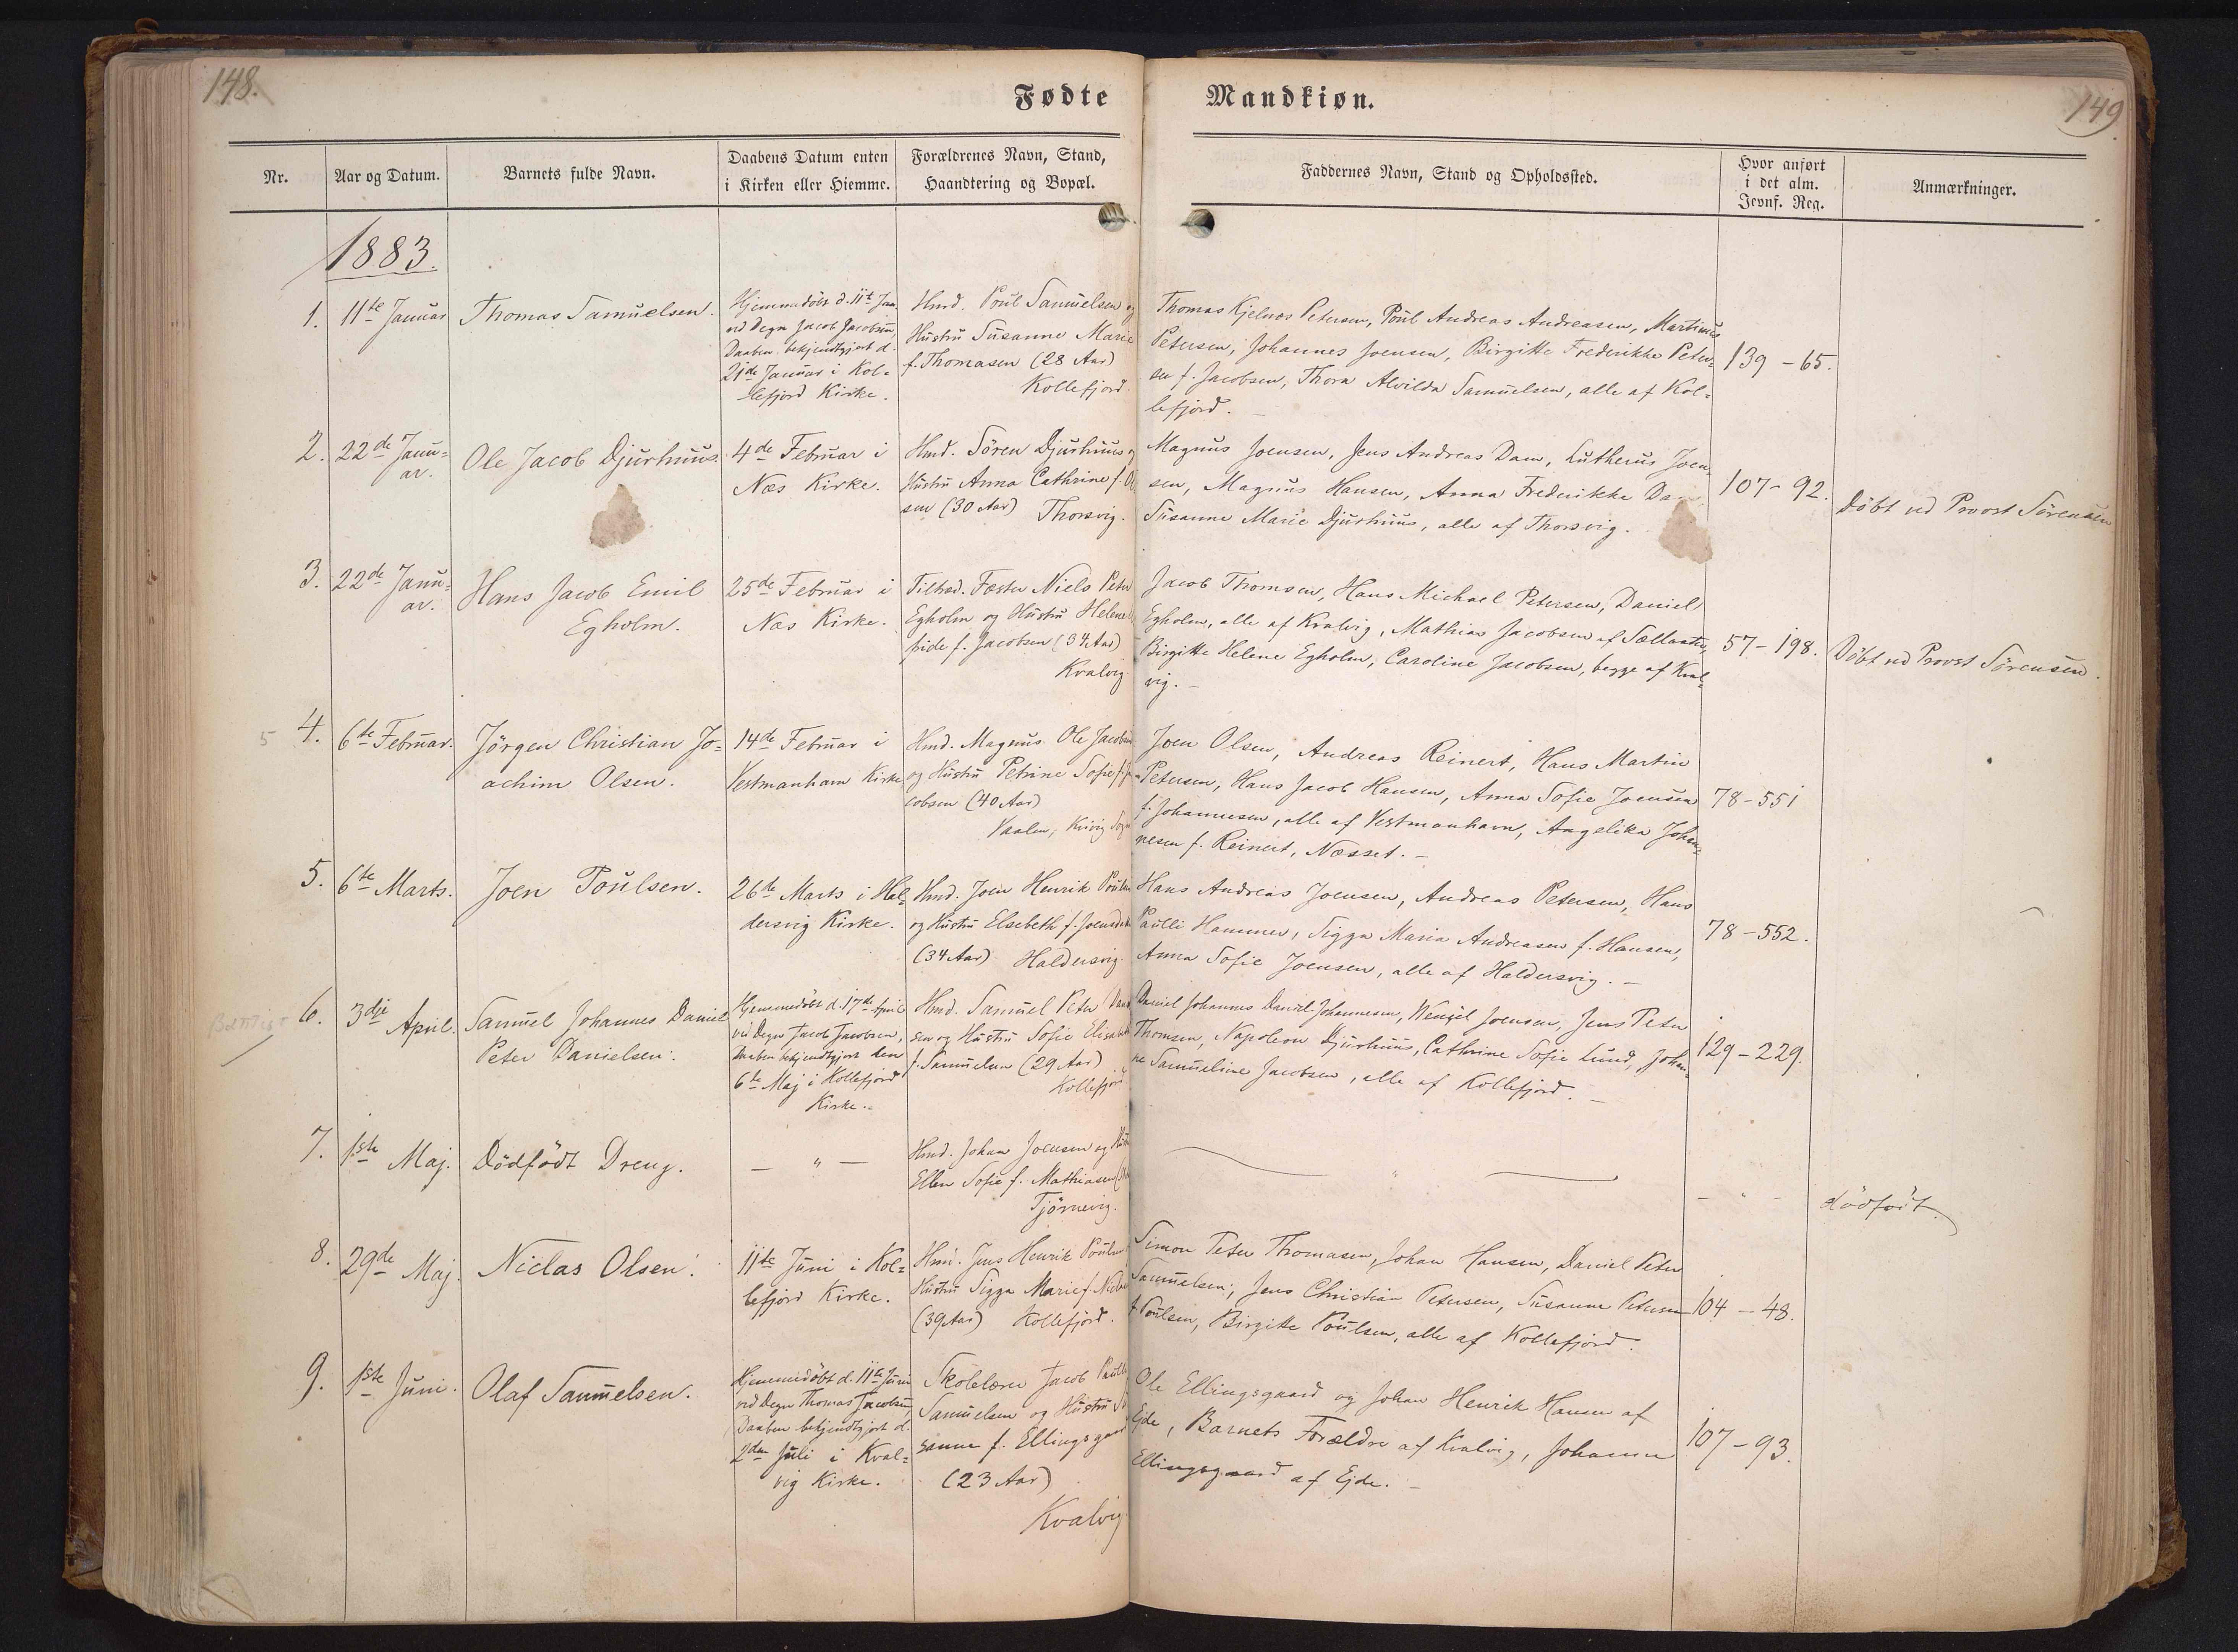 148.
Fødte
Nr.
Aar og Datum.
Barnets fulde Navn.
Daabens Datum enten
i Kirken eller Hiemme.
Forældrenes Navn, Stand,
Haandtering og Bopæl.
1883.
1.
11te Januar
Thomas Samuelsen.
Hjemmedöbt d. 11te Jan.
ved Degn Jacob Jacobsen,
Daaben bekjendtgjort d.
21de Januar i Kol=
lefjord Kirke.
Hmd. Poul Samuelsen og
Hustru Susanne Marie
f. Thomasen (28 Aar)
Kollefjord.
2.
22de Janu=
ar.
Ole Jacob Djurhuus.
4de Februar i
Næs Kirke.
Hmd. Sören Djurhuus og
Hustru Anna Cathrine f. Ol
sen (30 Aar) Thorsvig.
3.
22de Janu=
ar.
Hans Jacob Emil
Egholm.
25de Februar i
Næs Kirke.
Tilhæd. Fæster Niels Peter
Egholm og Hustru Helene
fride f. Jacobsen (34 Aar)
Kvalvig
5
4.
6te Februar.
Jörgen Christian Jo=
achim Olsen.
14de Februar i
Vestmanhavn Kirke
Hmd. Magnus Ole Jacobsen
og Hustru Petrine Sofie f. Ja
cobsen (40 Aar)
Vaalen, Kvivig Sogn
5.
6te Marts.
Joen Poulsen.
26de Marts i Hal=
dersvig Kirke.
Hmd. Joen Henrik Poulsen
og Hustru Elsebeth f. Joensdatter
(34 Aar) Haldersvig.
Baptist
6.
3dje April.
Samuel Johannes Daniel
Peter Danielsen.
Hjemmedöbt d. 17de April
ved Degn Jacob Jacobsen,
Daaben bekjendtgjort den
6te Maj i Kollefjord
Kirke.
Hmd. Samuel Peter Daniel
sen og Hustru Sofie Elisabeth
f. Samuelsen (29 Aar)
Kollefjord
7.
1ste Maj.
Dödfödt Dreng.
— " —
Hmd. Johan Joensen og Hustru
Ellen Sofie f. Mathiasen
Tjörnevig.
8.
29de Maj.
Niclas Olsen.
11te Juni i Kol=
lefjord Kirke.
Hmd. Jens Henrik Poulsen
Hustru Sigga Marie f. Niclasen
(39 Aar) Kollefjord.
9.
1ste Juni.
Olaf Samuelsen.
Hjemmedöbt d. 11te Juni
ved Degn Thomas Jacobsen,
Daaben bekjendtgjort d.
2den Juli i Kval=
vig Kirke.
Skolelærer Jacob Pauli
Samuelsen og Hustru Su
sanne f. Ellingsgaard
(23 Aar)
Kvalvig
Mandkiøn.
149.
Faddernes Navn, Stand og Opholdssted.
Hvor anført
i det alm.
Jevnf. Reg.
Anmærkninger.
Thomas Kjelnæs Petersen, Poul Andreas Andreasen, Martinus
Petersen, Johannes Joensen, Birgitte Frederikke Peter=
sen f. Jacobsen, Thora Alvilda Samuelsen, alle af Kol=
lefjord. —
139 - 65.
Magnus Joensen, Jens Andreas Dam, Lutherus Joen=
sen, Magnus Hansen, Anna Frederikke
Susanne Marie Djurhuus, alle af Thorsvig.
107 - 92.
Döbt ved Provst Sörensen
Jacob Thomsen, Hans Michael Petersen, Daniel
Egholm, alle af Kvalvig, Mathias Jacobsen af Sællatræ,
Birgitte Helene Egholm, Caroline Jacobsen, begge af Kval=
vig. —
57 - 198.
Döbt ved Provst Sörensen.
Joen Olsen, Andreas Reinert, Hans Martin
Petersen, Hans Jacob Hansen, Anna Sofie Joensen
f. Johannesen, alle af Vestmanhavn, Angelika Johan=
nesen f. Reinert, Næsset. —
78 - 551
Hans Andreas Joensen, Andreas Petersen, Hans
Paulli Hammer, Sigga Maria Andreasen f. Hansen,
Anna Sofie Joensen, alle af Haldersvig. —
78 - 552.
Daniel Johannes Daniel Johannesen, Wenzel Joensen, Jens Peter
Thomsen, Napoleon Djurhuus, Cathrine Sofie Lund, Johan=
ne Samueline Jacobsen, alle af Kollefjord. —
129 - 229.
"
- " -
dödfödt.
Simon Peter Thomasen, Johan Hansen, Daniel Peter
Samuelsen, Jens Christian Petersen, Susanne Petersen
f. Poulsen, Birgitte Poulsen, alle af Kollefjord.
104 - 48.
Ole Ellingsgaard og Johan Henrik Hansen af
Ejde, Barnets Forældre af Kvalvig, Johanne
Ellingsgaard af Ejde. —
107 - 93.